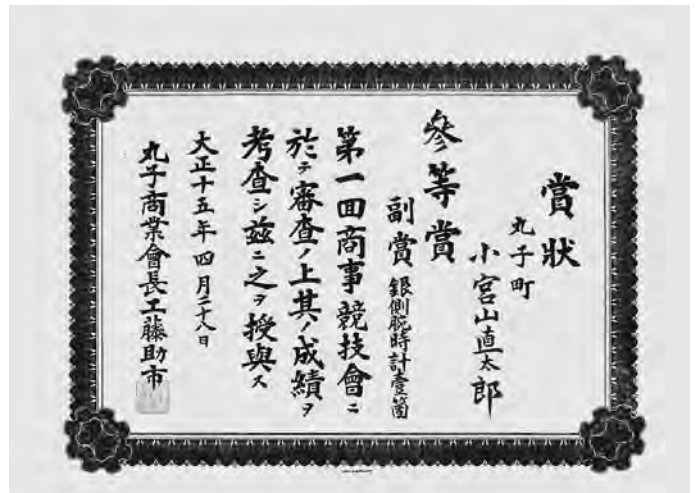 賞狀
丸子町
小宮山直太郎
參等賞
副賞 銀側腕時計壹箇
第一回商事競技會ニ
於テ審査ノ上其ノ成績ヲ
考査シ茲ニ之ヲ授與ス
大正十五年四月二十八日
丸子商業會長工藤助市